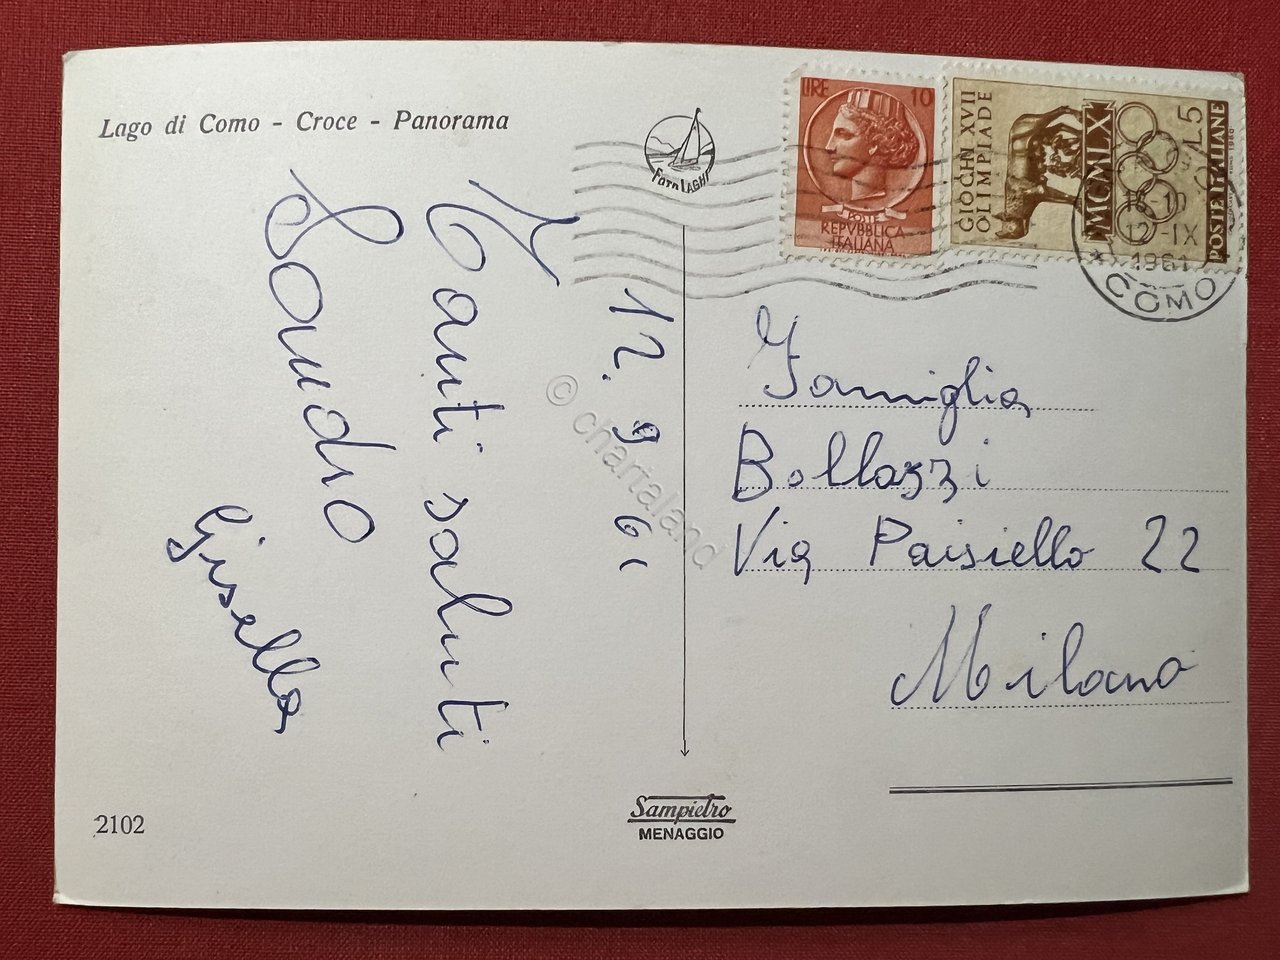 Lago di Como - Croce - Panorama
Foto LAGHI
LIRE 10
POSTE
REPVBBLICA
ITALIANA
GIOCHI XVII
OLIMPIADE
MCMLX
L.5
POSTE ITALIANE
1960
12-IX
1961
COMO
12. 9 61
Tanti saluti
Sandro
Gisella
Famiglia
Bollazzi
Via Paisiello 22
Milano
2102
Sampietro
MENAGGIO
© chartaland